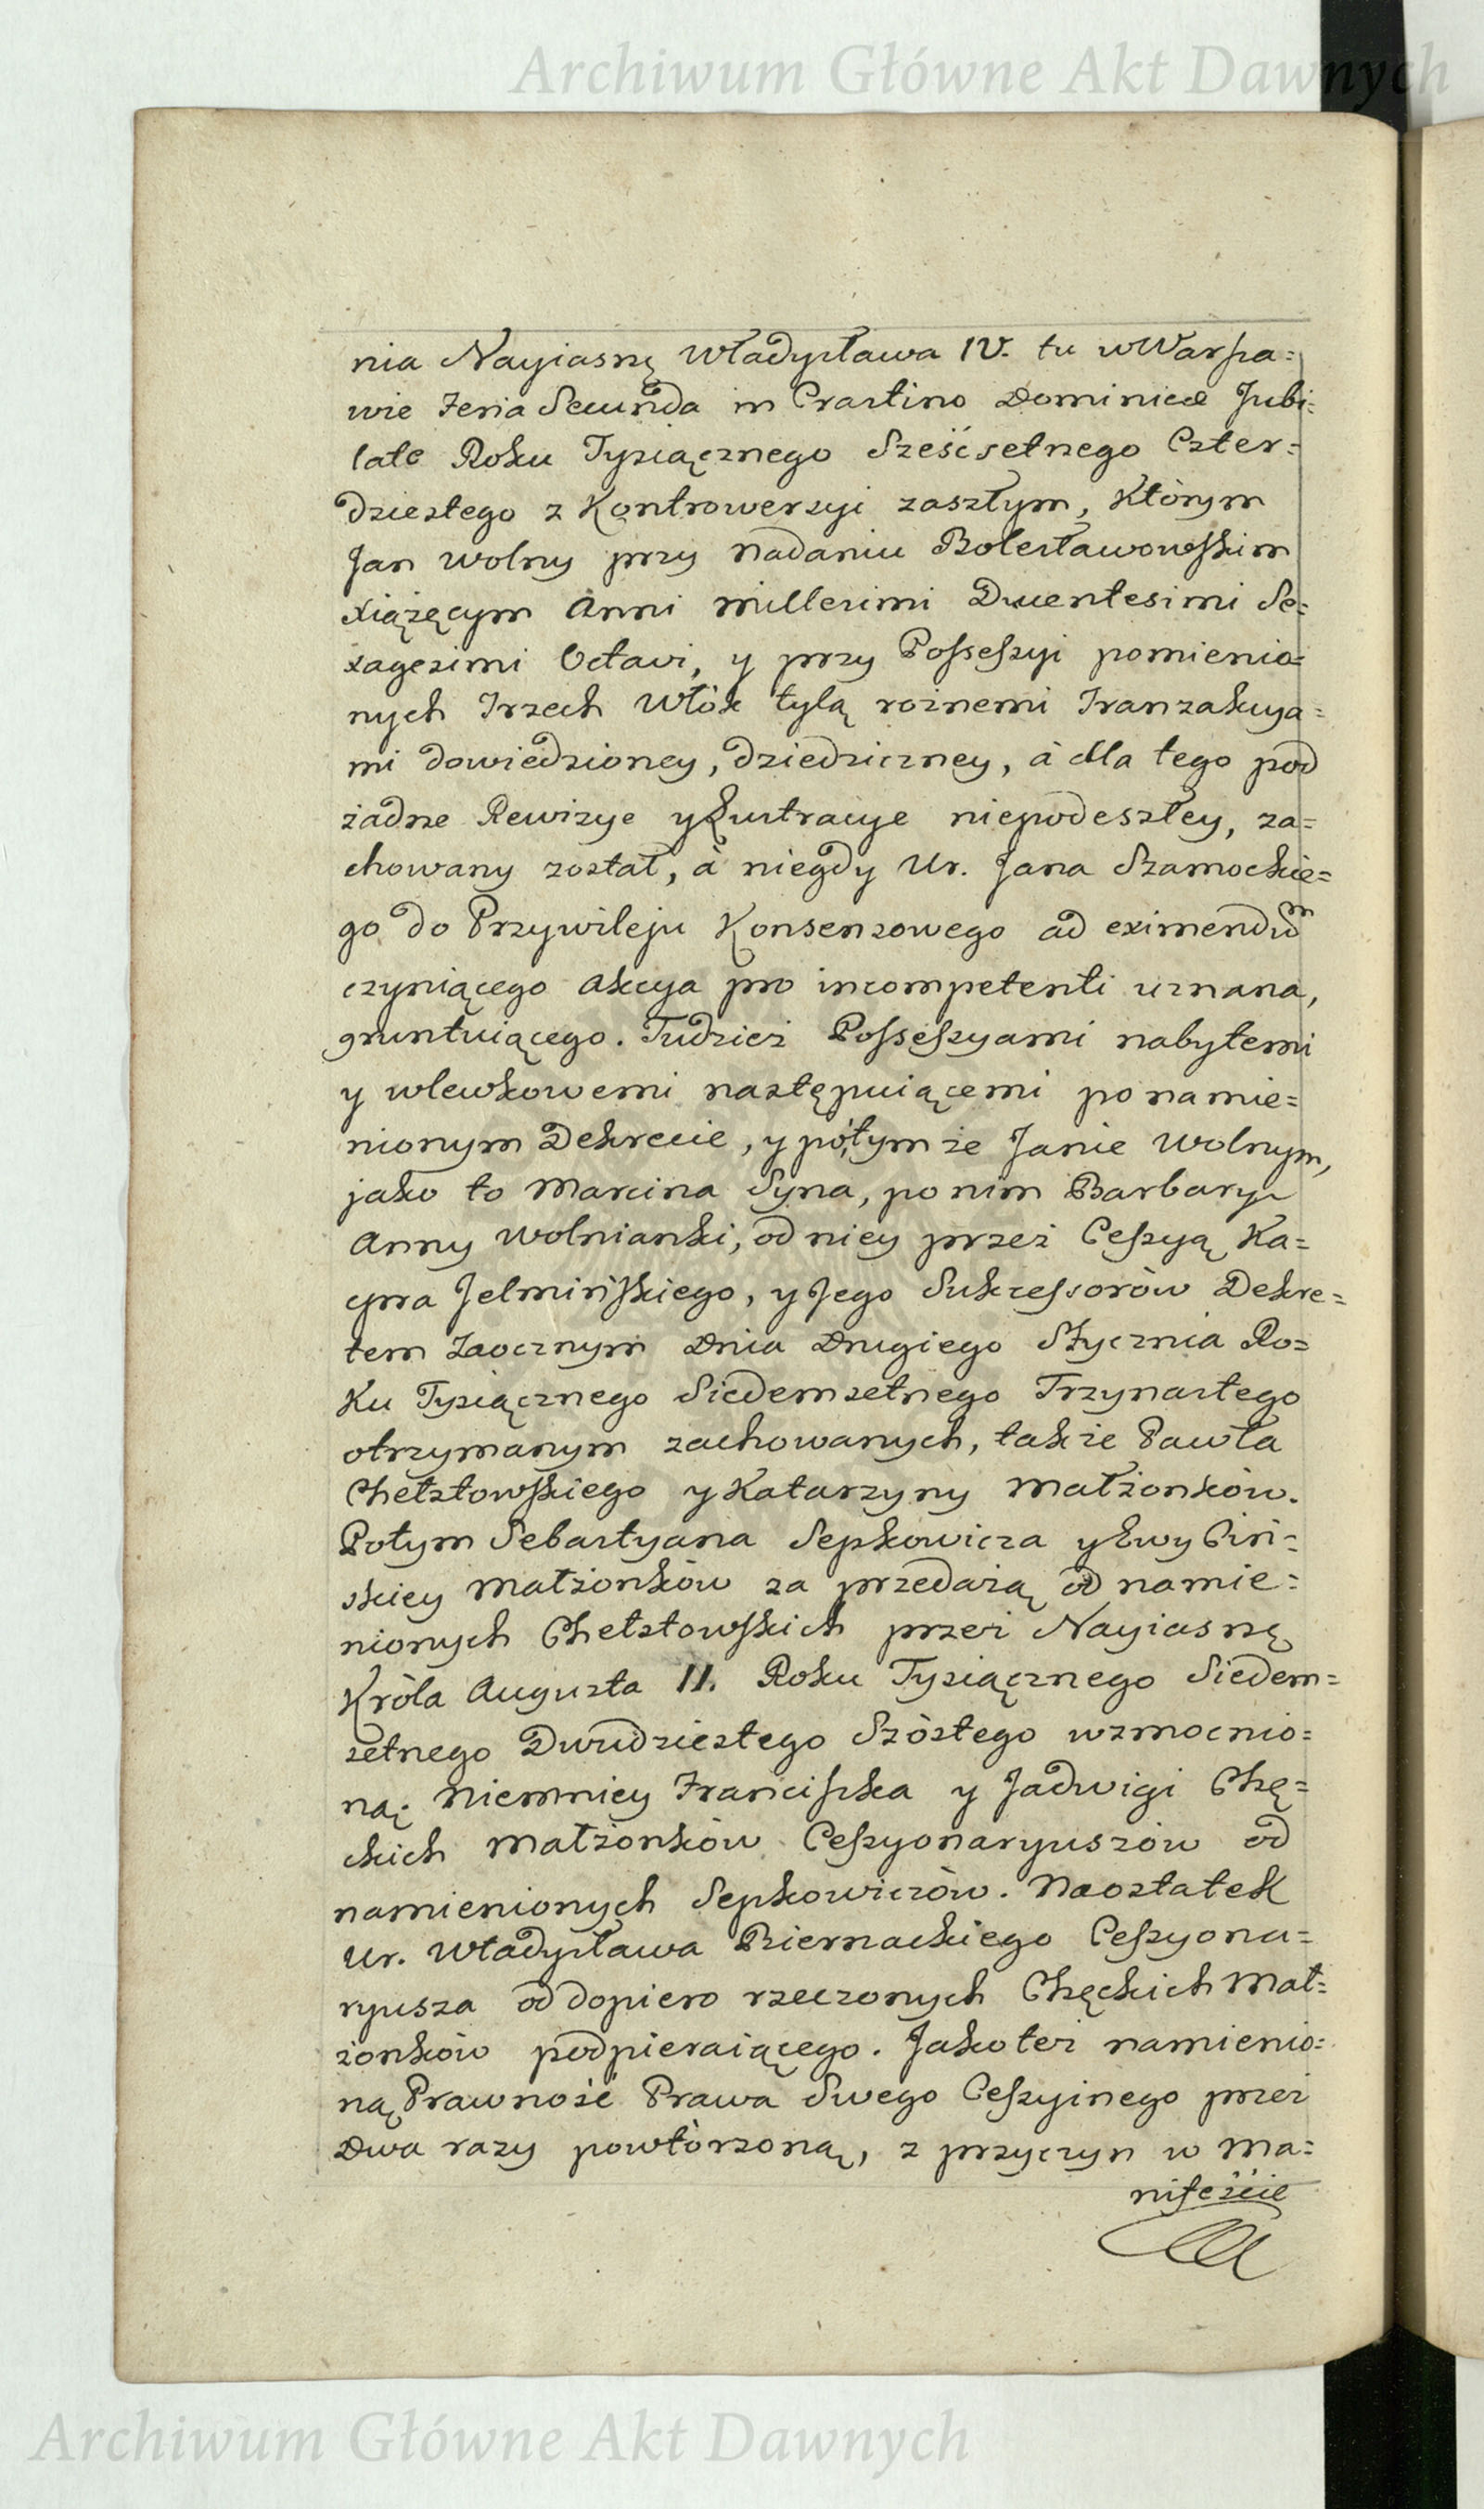 Archiwum Główne Akt Dawnych
nia Nayiasnę Władysława IV. tu w Warsza=
wie Feria Secunda in Crastino Dominicæ Jubi=
late Roku Tysiącznego Sześćsetnego Czter=
dziestego z Kontrowersyi zaszłym, którym
Jan Wolny przy nadaniu Bolesławowskim
xiążęcym Anni millesimi Ducentesimi Se=
xagesimi Octavi, y przy Possessyi pomienio=
nych Trzech Włók tylą rożnemi Tranzakcya=
mi dowiedzioney, dziedziczney, à dla tego pod
żadne Rewizye y Lustracye niepodeszłey, za=
chowany został, à niegdy Ur. Jana Szamockie=
go do Przywileju Konsensowego ad eximendum
czyniącego Akcya pro incompetenti uznana,
gruntuiącego. Tudzież Possessyami nabytemi
y wlewkowemi następuiącemi po namie=
nionym Dekrecie, y pótym że Janie Wolnym,
jako to Marcina Syna, po nim Barbary
Anny Wolnianki, od niey przez Cessyą Ka=
cpra Jelmińskiego, y Jego Sukcessorów Dekre=
tem Zaocznym Dnia Drugiego Stycznia Ro=
ku Tysiącznego Siedemsetnego Trzynastego
otrzymanym zachowanych, także Pawła
Chełstowskiego y Katarzyny Małżonków.
Potym Sebastyana Sepkowicza y Ewy Ciń=
skiey Małżonków za przedażą od namie=
nionych Chełstowskich przez Nayiasnę
Króla Augusta II. Roku Tysiącznego Siedem=
setnego Dwudziestego Szóstego wzmocnio=
ną. Niemniey Franciszka y Jadwigi Chę=
ckich Małżonków Cessyonaryuszów od
namienionych Sepkowiczów. Naostatek
Ur. Władysława Biernackiego Cessyona=
ryusza od dopiero rzeczonych Chęckich Mał=
żonków podpieraiącego. Jako też namienio=
ną Prawność Prawa Swego Cessyinego przez
Dwa razy powtórzoną, z przyczyn w Ma=
nifeście
Archiwum Główne Akt Dawnych